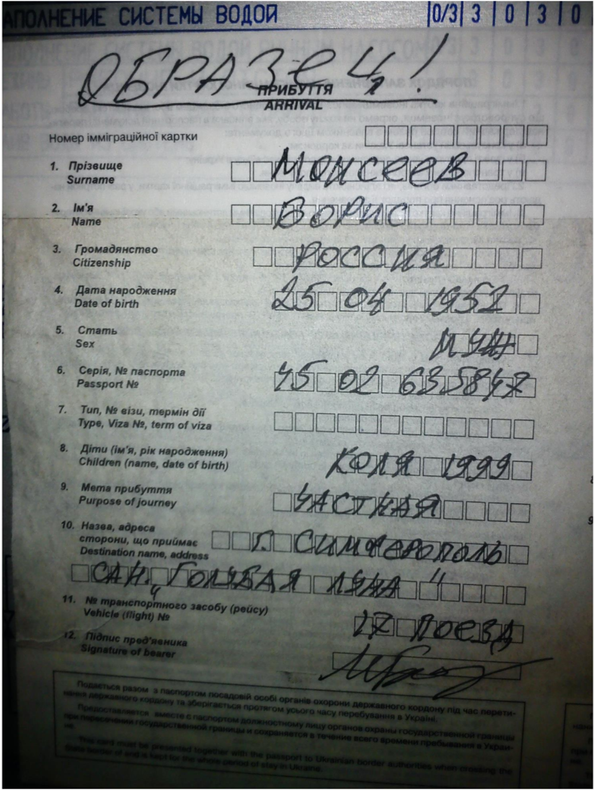 АПОЛНЕНИЕ СИСТЕМЫ ВОДОЙ 0/3 3 0 3 0
ОБРАЗЕЦ!
ПРИБУТТЯ
ARRIVAL
Номер імміграційної картки
1. Прізвище МОИСЕЕВ
Surname
2. Ім'я БОРИС
Name
3. Громадянство РОССИЯ
Citizenship
4. Дата народження 25 04 1952
Date of birth
5. Стать МУЖ
Sex
6. Серія, № паспорта 45 02 635847
Passport №
7. Тип, № візи, термін дії
Type, Viza №, term of viza
8. Діти (ім'я, рік народження) КОЛЯ 1999
Children (name, date of birth)
9. Мета прибуття ЧАСТНАЯ
Purpose of journey
10. Назва, адреса
сторони, що приймає г. СИМФЕРОПОЛЬ
Destination name, address
САН. "ГОЛУБАЯ ЛУНА"
11. № транспортного засобу (рейсу) 17 ПОЕЗД
Vehicle (flight) №
12. Підпис пред'явника
Signature of bearer
Подається разом з паспортом посадовій особі органів охорони державного кордону під час перети-
нання державного кордону та зберігається протягом усього часу перебування в Україні.
Предъявляется вместе с паспортом должностному лицу органов охраны государственной границы
при пересечении государственной границы и сохраняется в течение всего времени пребывания в Украи-
не.
This card must be presented together with the passport to Ukrainian border authorities when crossing the
State border of and is kept for the whole period of stay in Ukraine.